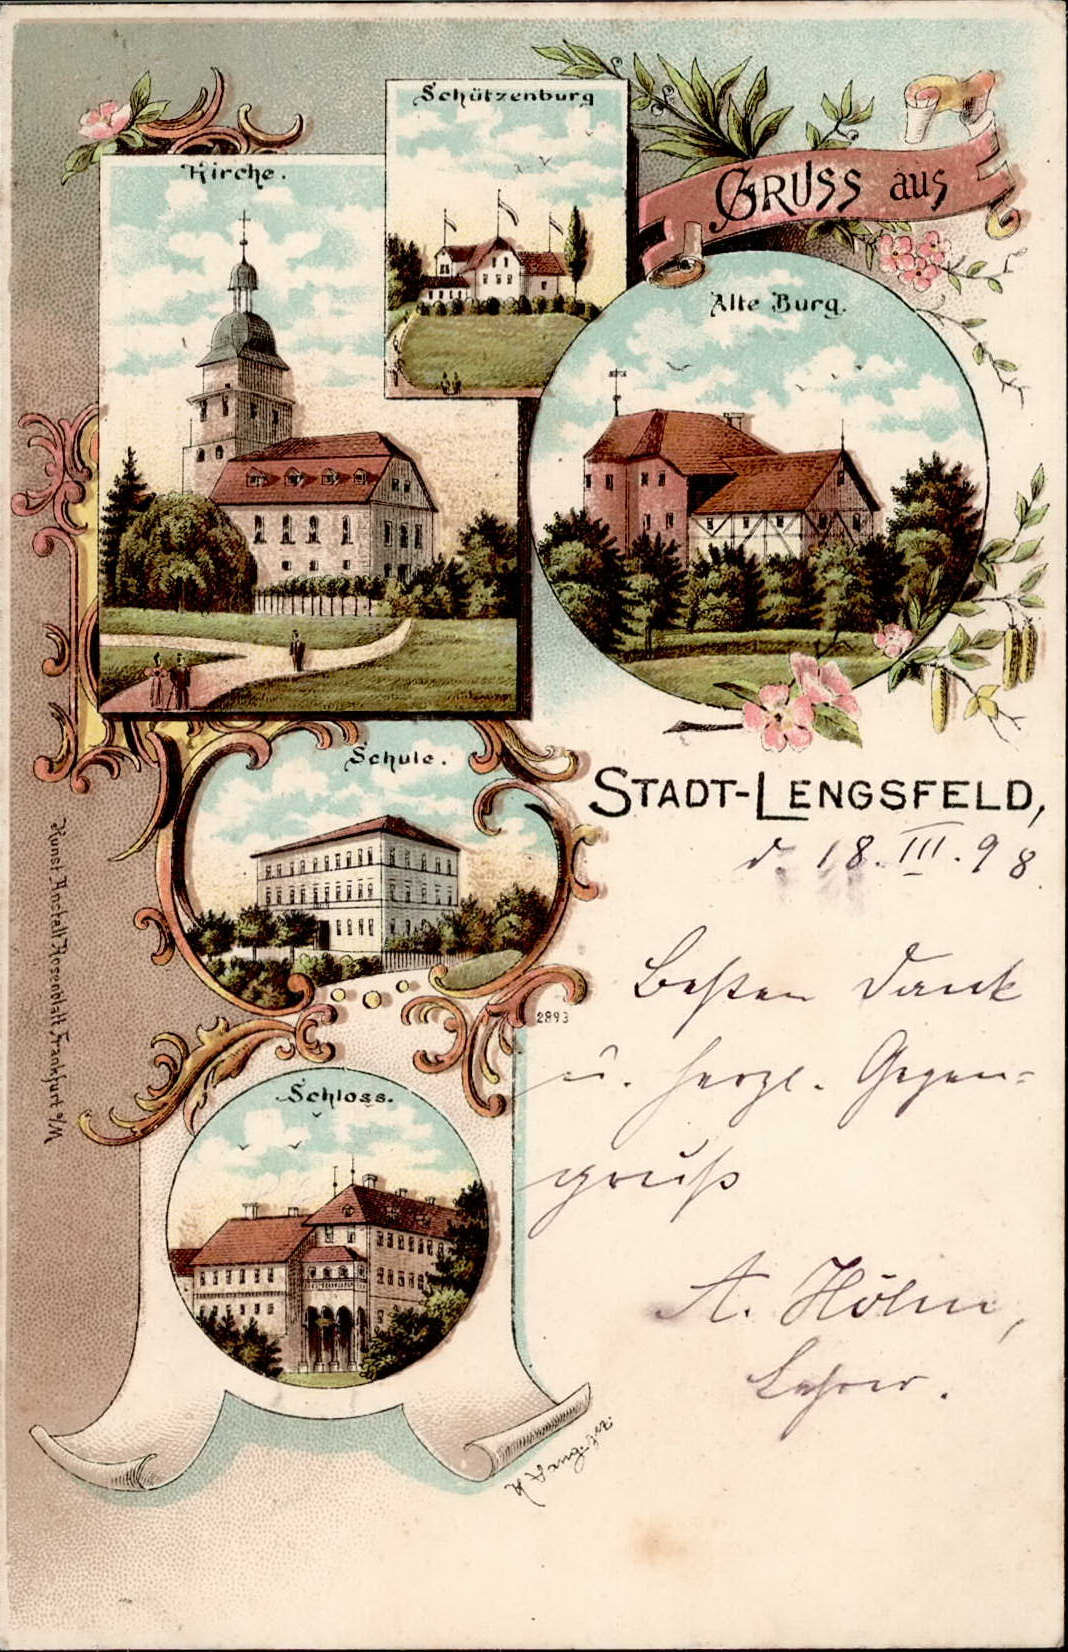 Schützenburg
Kirche.
GRUSS aus
Alte Burg.
Schule.
STADT-LENGSFELD,
d. 18. III. 98.
Besten Dank
u. herzl. Gegen=
gruß
A. Höhn,
Lehrer.
2893
Schloss.
Kunst Anstalt Rosenblatt, Frankfurt a/M
gez.